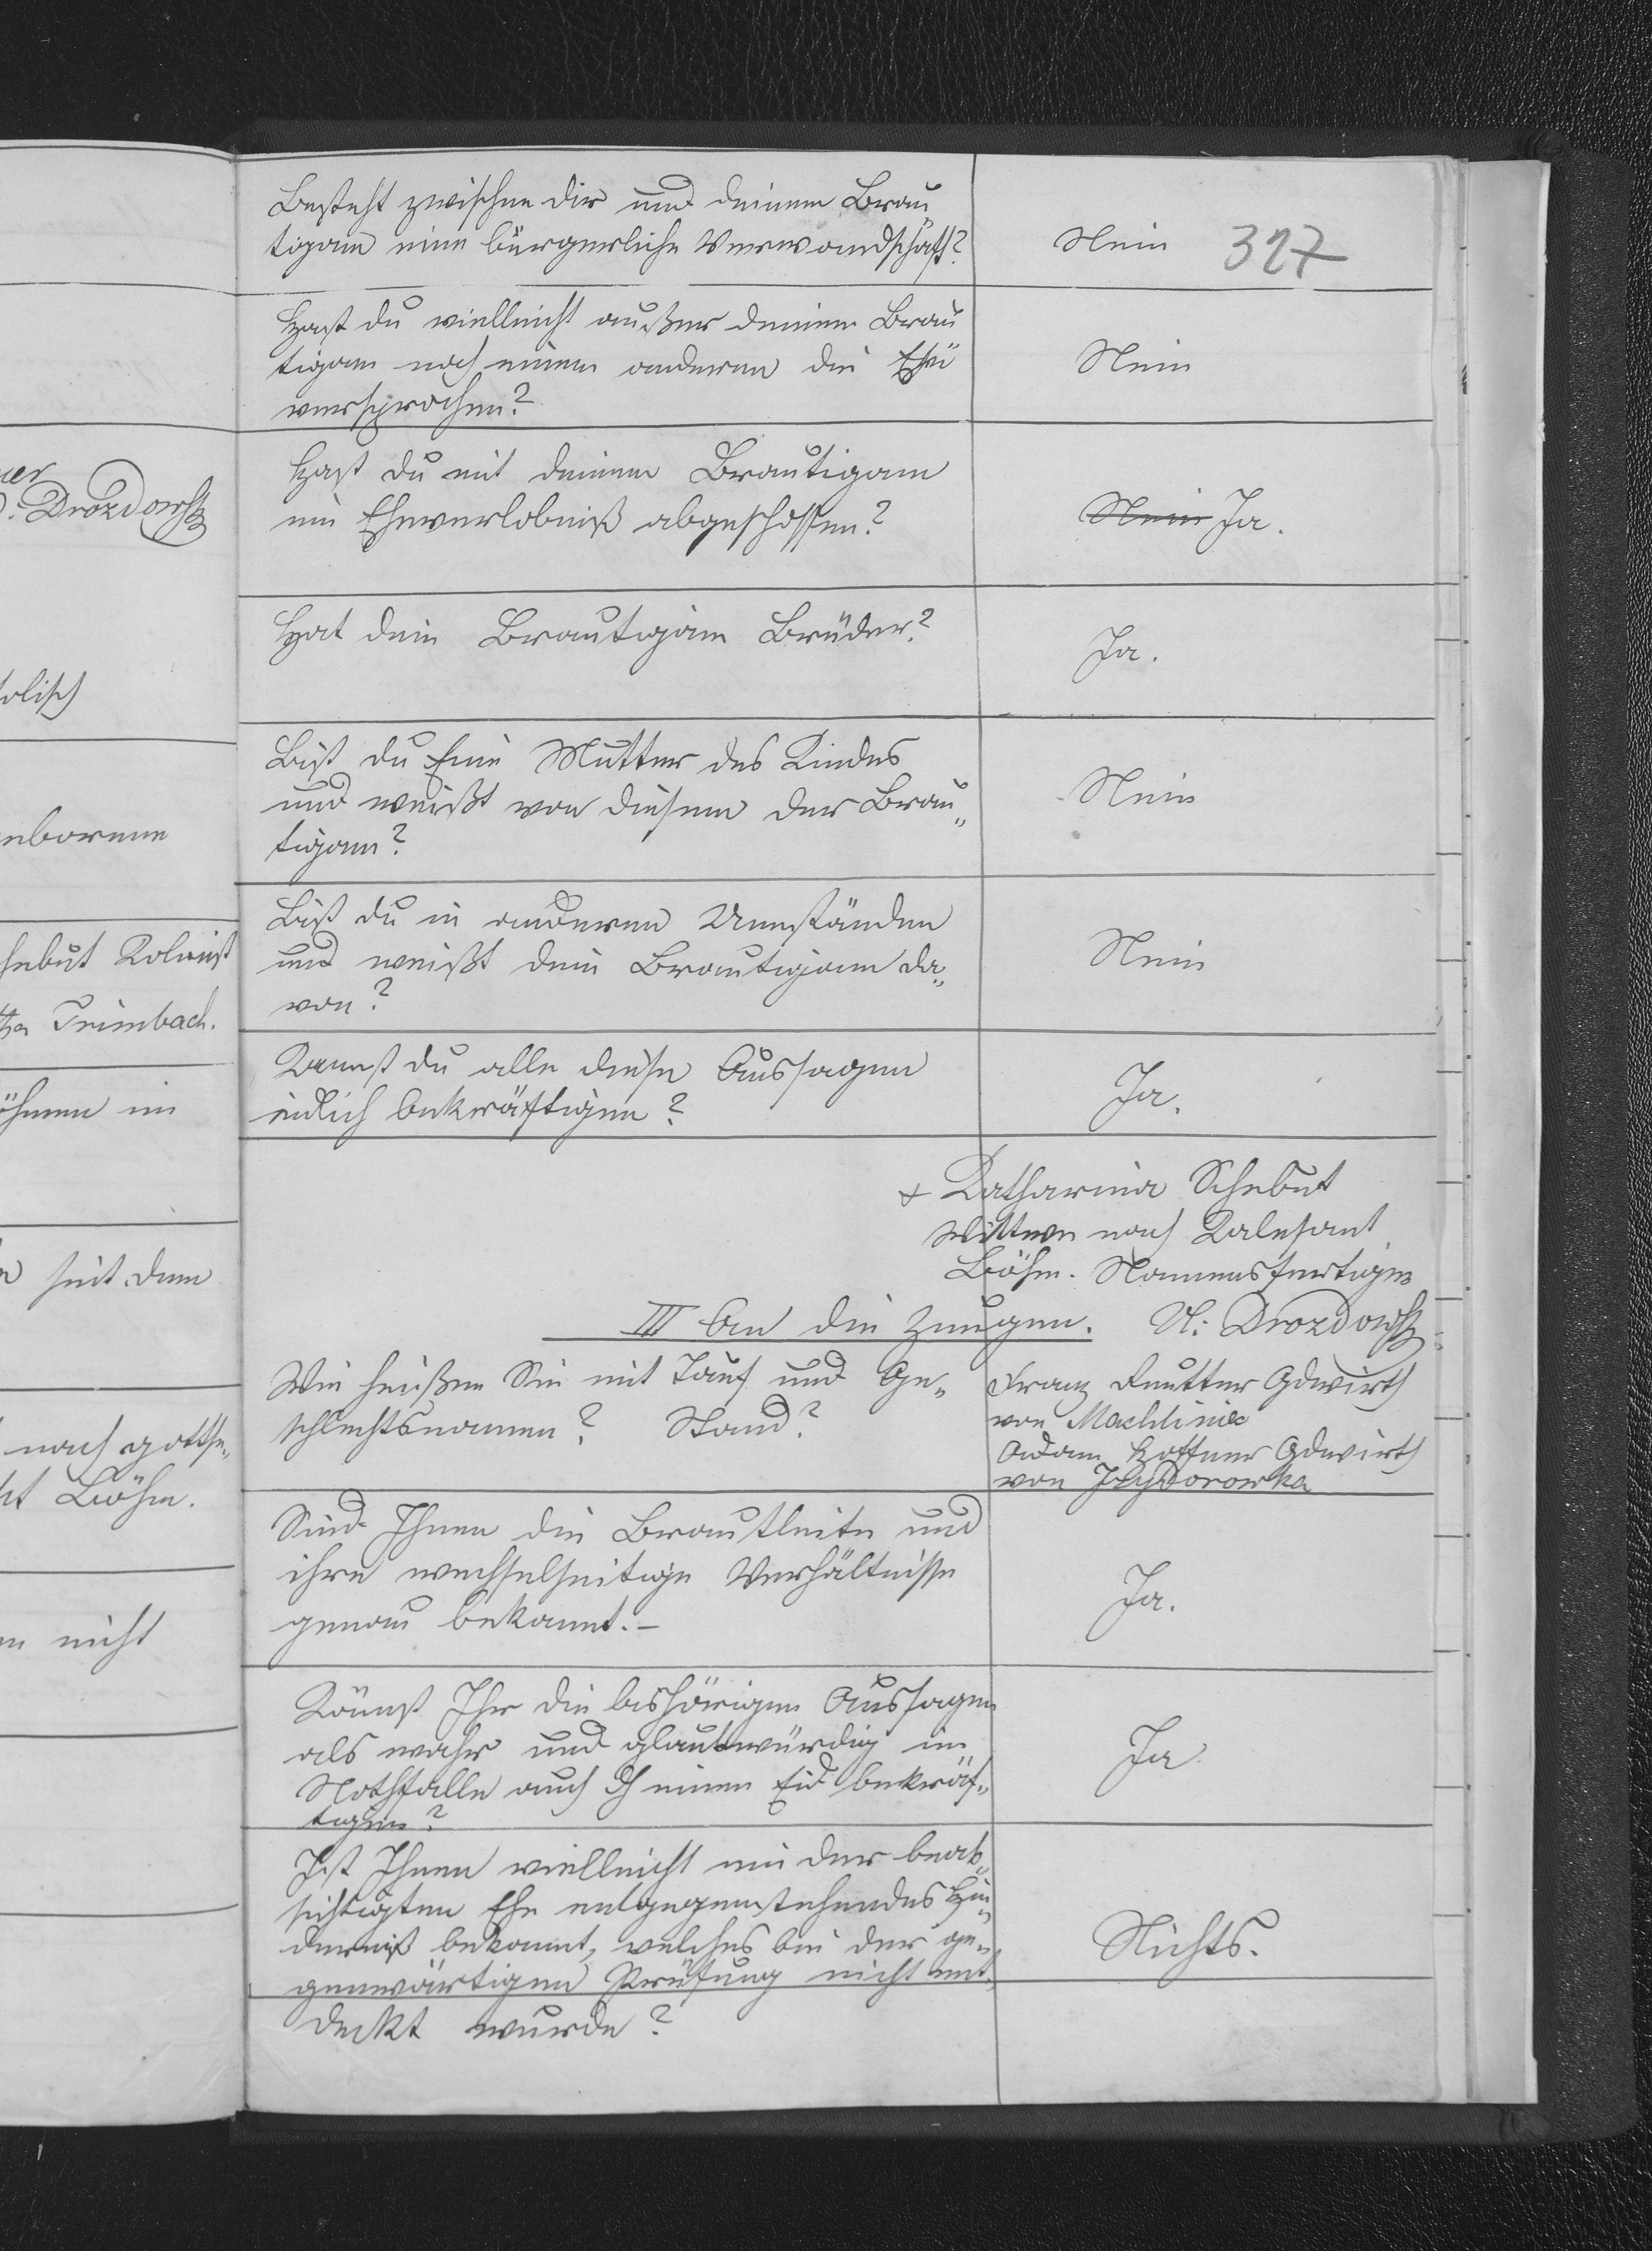 Besteht zwischen dir und deinem Bräu
tigam eine bürgerliche Verwandschaft?
Nein
327
Hast du vielleicht außer deinem Bräu
tigam noch einem anderen die Ehe
versprochen?
Nein
Hast du mit deinem Brautigam
ein Eheverlobniß abgeschossen?
Nein Ja.
Hat dein Brautigam Brüder?
Ja.
Bist du Eine Mutter des Kindes
und weißt von diesem der Brau„
tigam?
Nein
Bist du in anderen Umständen
und weißt dein Brautigam da„
von?
Nein
Kannst du alle diese Aussagen
eidlich bekräftigen?
Ja.
+ Katharina Schebut
Wittwe nach
Böhm. Namensfertiger
III An die Zeugen.
N: Drozdowski
Wie heißen Sie mit Tauf und Ge„
schlechtsnamen? Stand?
Franz Reutter Gdwirth
von Machliniec
Adam Hoffner Gdwirth
von Izydorowka
Sind Ihnen die Brautleite und
ihre wechselseitige Verhältnisse
genau bekannt.—
Ja.
Könnst Ihr die bishörigen Aussagen
als wahr und glaubwürdig im
Nothfalle auch einen Eid bekräf„
tigen?
Ja
Ist Ihnen vielleicht ein der beab„
sichtigten Ehe entgegenstehendes Hin„
derniß bekannt, welches bei der ge„
genwärtigen Prüfung nicht ent„
deckt wurde?
Nichts.
Drozdowski
tolisch
eborene
hebut Kolonist
Trimbach.
öhmen im
seit dem
nach gottse„
Böhm.
nicht